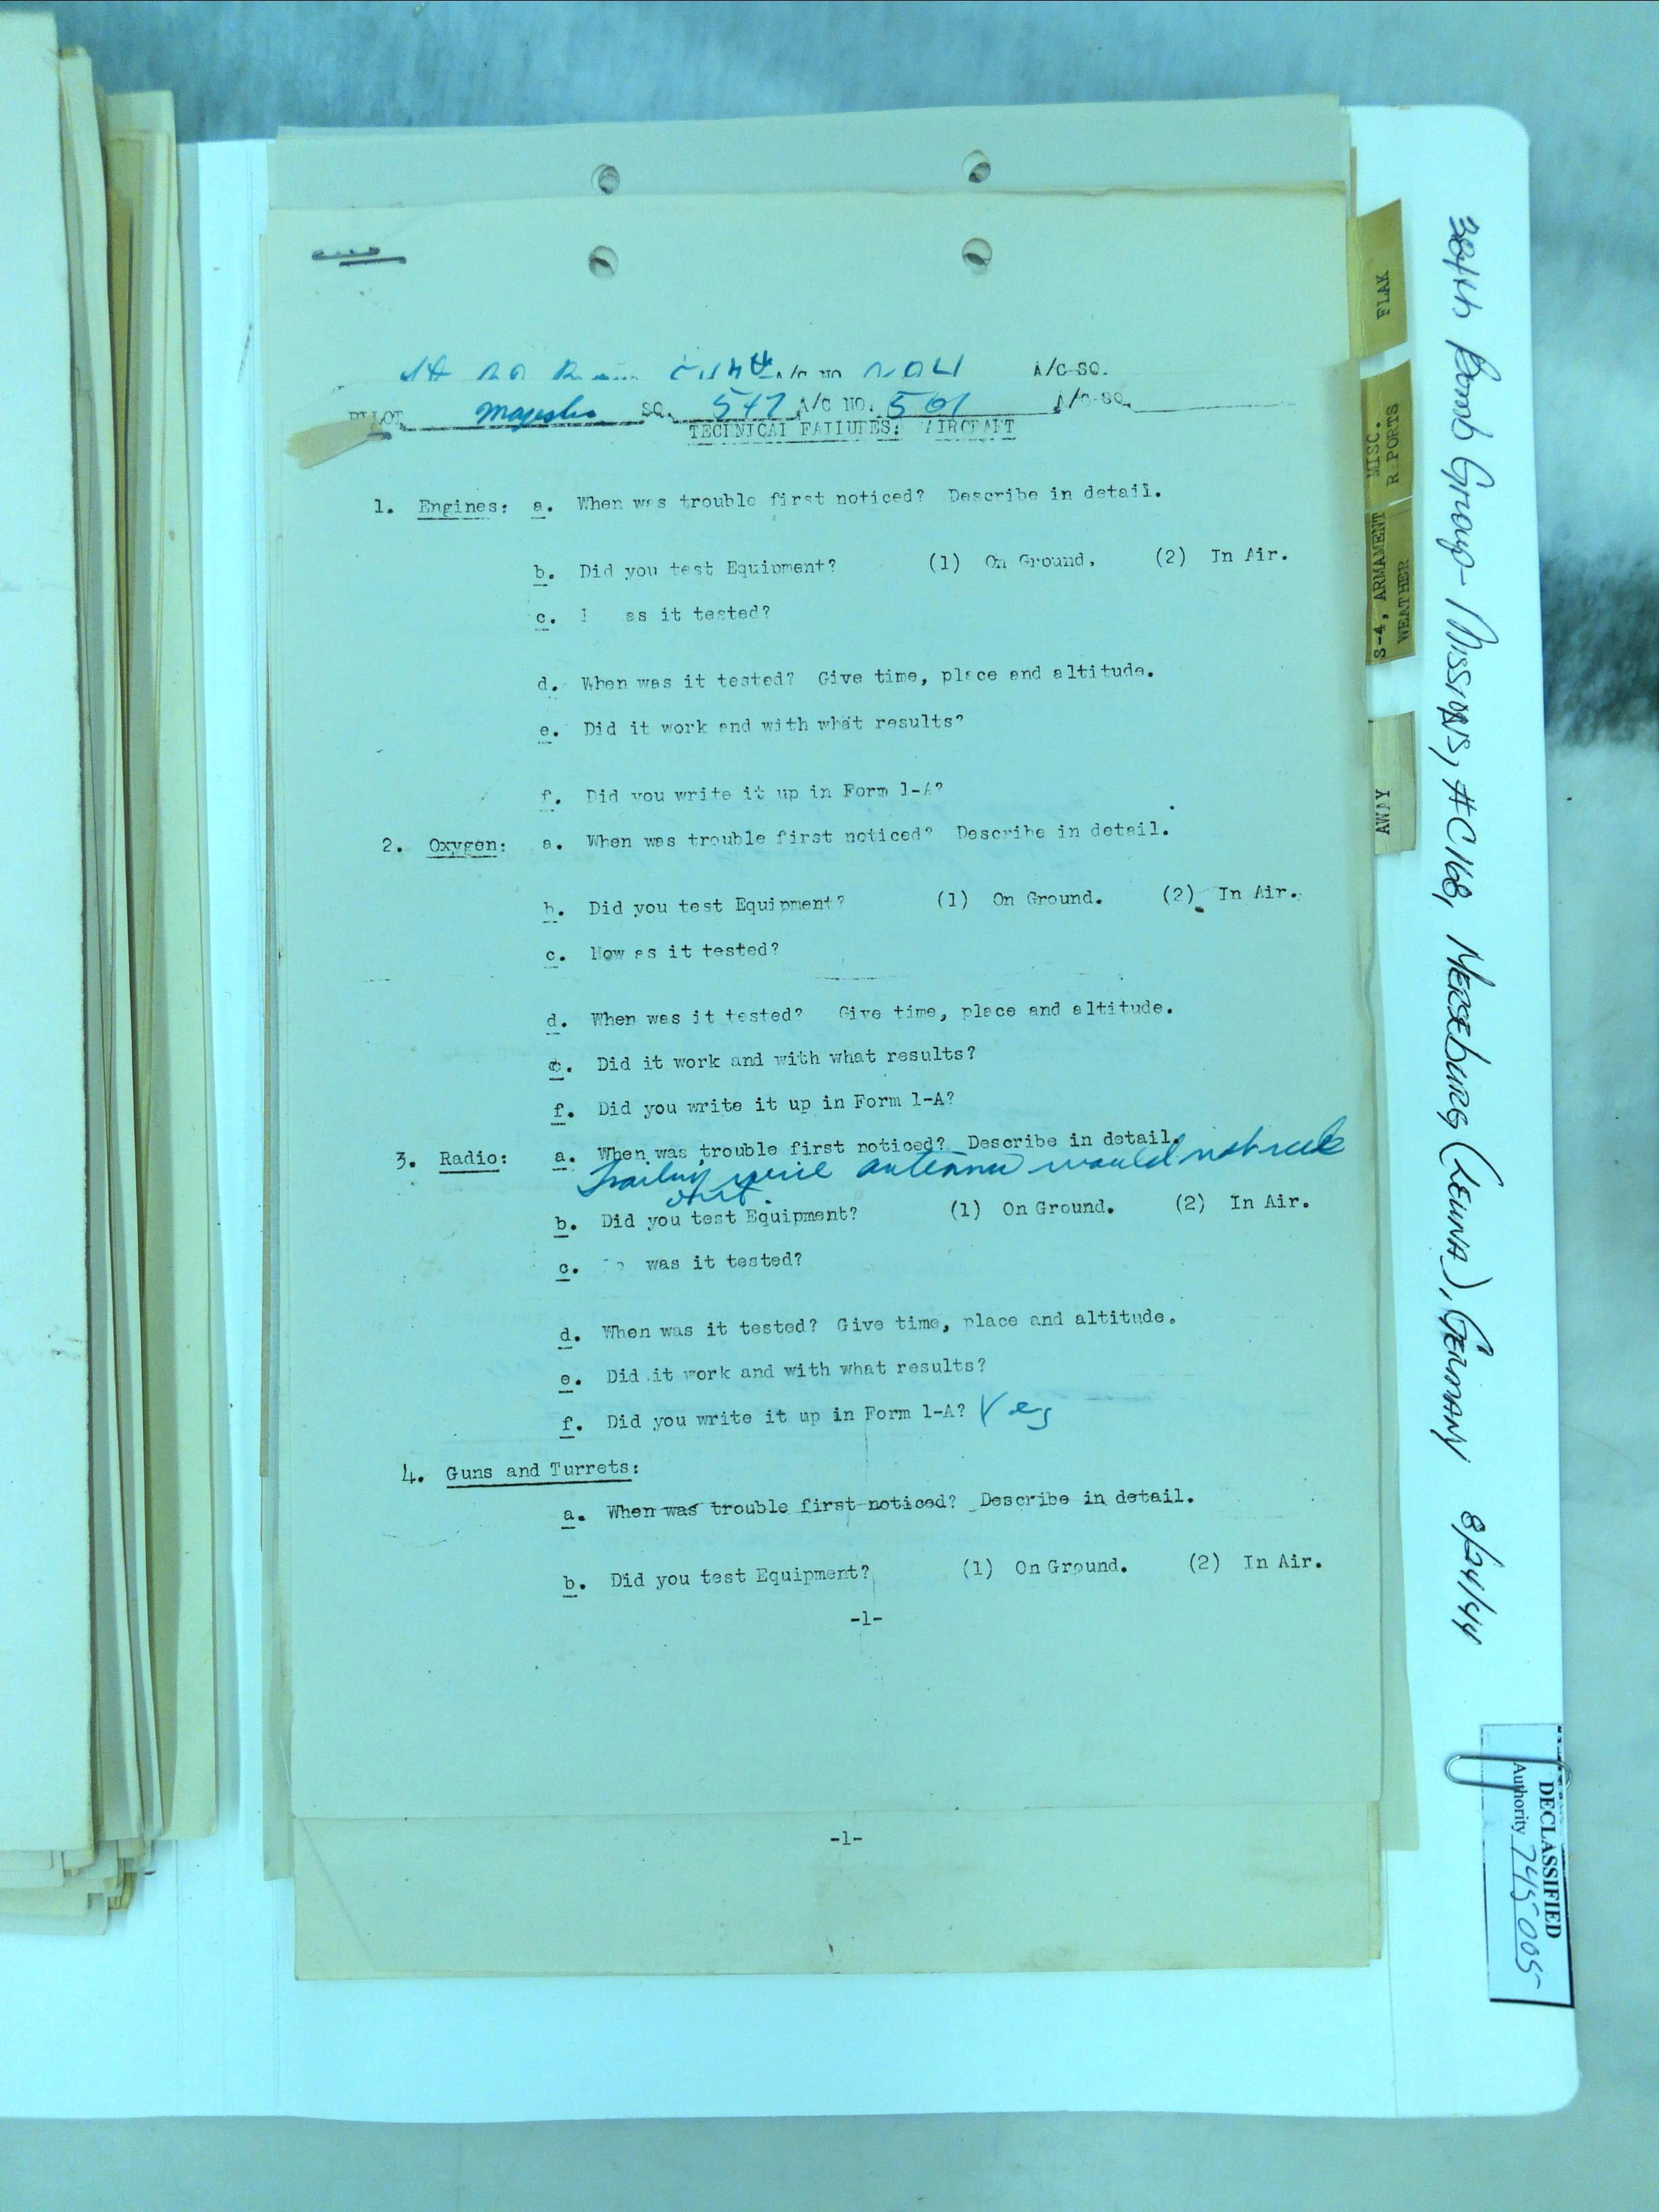 A/C NO A/C SQ.
PILOT SQ. 547 A/C NO. 501 A/C SQ.
TECHNICAL FAILURES: AIRCRAFT
1. Engines: a. When was trouble first noticed? Describe in detail.
b. Did you test Equipment? (1) On Ground. (2) In Air.
c. as it tested?
d. When was it tested? Give time, place and altitude.
e. Did it work and with what results?
f. Did you write it up in Form 1-A?
2. Oxygen: a. When was trouble first noticed? Describe in detail.
b. Did you test Equipment? (1) On Ground. (2) In Air.
c. How as it tested?
d. When was it tested? Give time, place and altitude.
e. Did it work and with what results?
f. Did you write it up in Form 1-A?
3. Radio: a. When was trouble first noticed? Describe in detail.
Trailing wire antenna would not reel
out.
b. Did you test Equipment? (1) On Ground. (2) In Air.
c. was it tested?
d. When was it tested? Give time, place and altitude.
e. Did it work and with what results?
f. Did you write it up in Form 1-A? Yes
4. Guns and Turrets:
a. When was trouble first noticed? Describe in detail.
b. Did you test Equipment? (1) On Ground. (2) In Air.
-1-
-1-
FLAK
MISC.
R PORTS
S-4, ARMAMENT
WEATHER
AWAY
384th Bomb Group - Missions, #C168, Merseburg (Leuna), Germany 8/24/44
DECLASSIFIED
Authority 745005